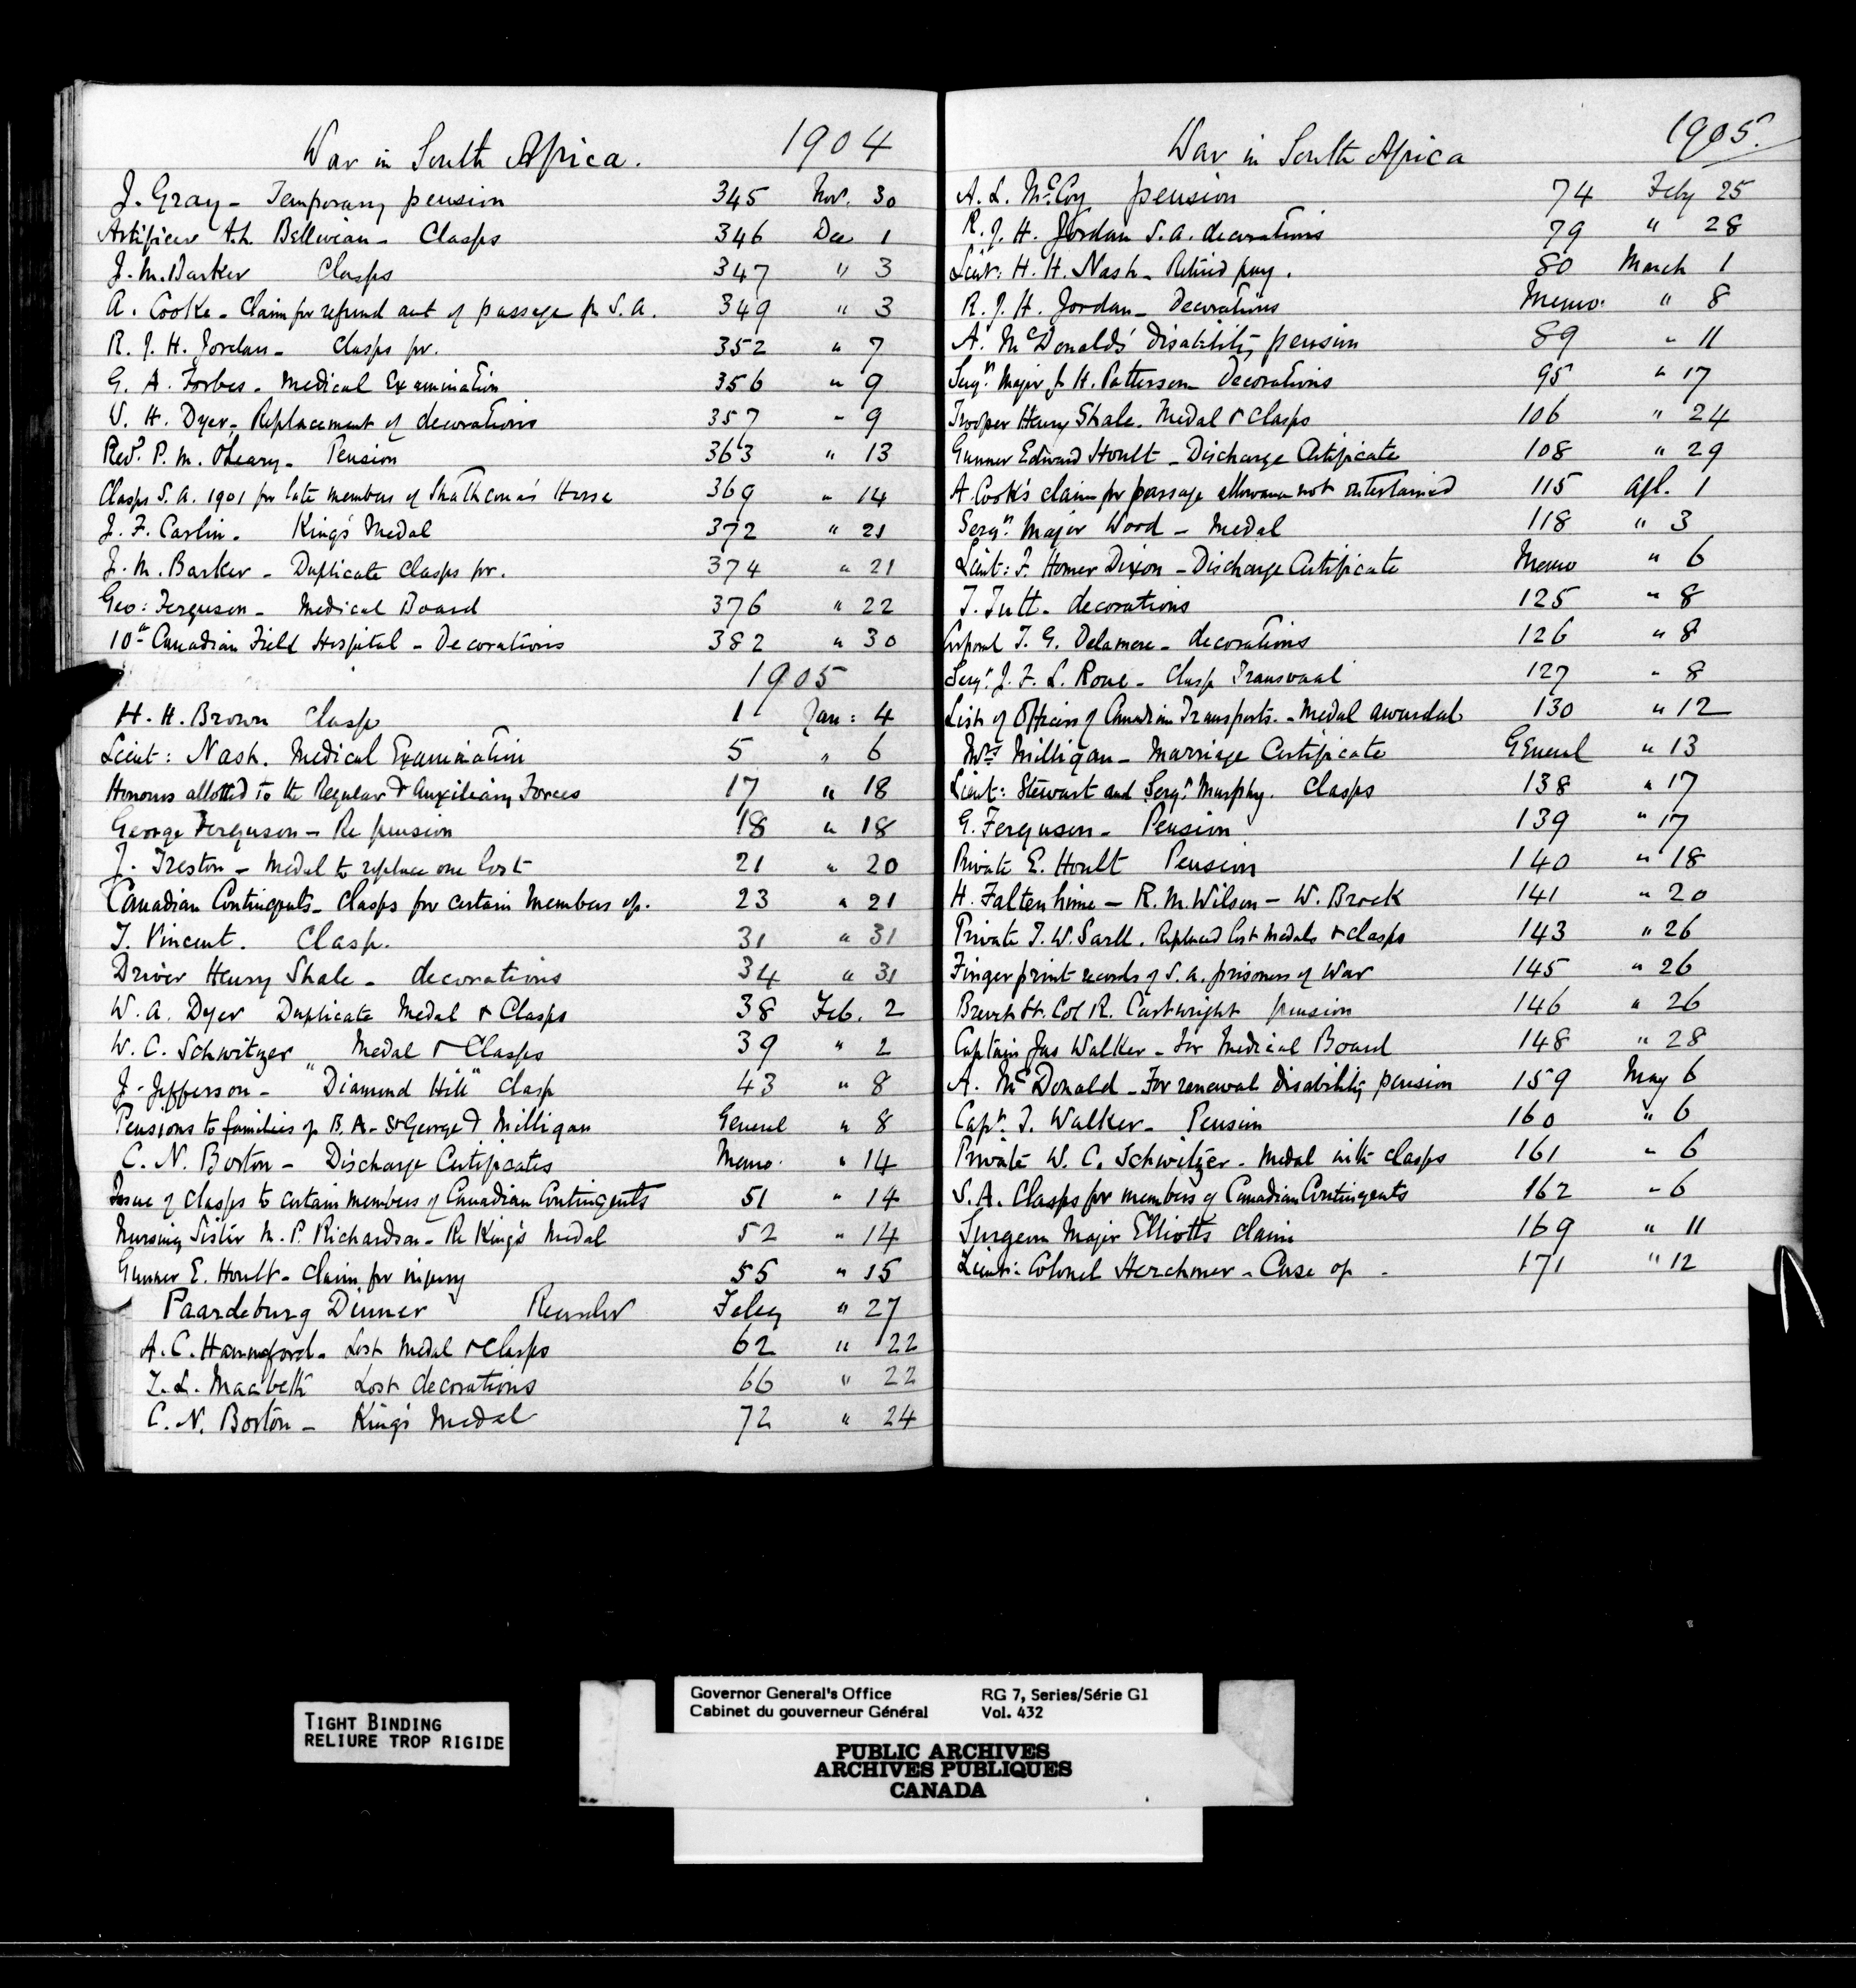 War in South Africa. 1904
J. Gray - Temporary pension 345 Nov. 30
Artificer A.L. Bellevian - Clasps 346 Dec 1
J. M. Barker Clasps 347 " 3
A. Cooke - Claim for refund act of passage fr S.A. 349 " 3
R. J. H. Jordan - Clasps for. 352 " 7
G. A. Forbes - Medical Examination 356 " 9
W. H. Dyer - Replacement of decorations 357 " 9
Revd. P. M. O'Leary - Pension 363 " 13
Clasps S.A. 1901 for late members of Strathcona's Horse 369 " 14
J. F. Carlin - King's Medal 372 " 21
J. M. Barker - Duplicate Clasps for. 374 " 21
Geo: Ferguson - Medical Board 376 " 22
10th Canadian Field Hospital - Decorations 382 " 30
1905
H. H. Brown Clasp 1 Jan: 4
Lieut: Nash. Medical Examination 5 " 6
Honours allotted to the Regular & Auxiliary Forces 17 " 18
George Ferguson - Re pension 18 " 18
J. Treston - Medal to replace one lost 21 " 20
Canadian Contingents - Clasps for certain members of. 23 " 21
T. Vincent. Clasp. 31 " 31
Driver Henry Shale - decorations 34 " 31
W. A. Dyer Duplicate Medal & Clasps 38 Feb. 2
W. C. Schwitzer Medal & Clasps 39 " 2
J. Jefferson - "Diamond Hill" Clasp 43 " 8
Pensions to families of B. A. St George & Milligan General " 8
C. N. Borton - Discharge Certificates Memo. " 14
Issue of clasps to certain members of Canadian Contingents 51 " 14
Nursing Sister M. P. Richardson - Re King's Medal 52 " 14
Gunner E. Hoult - Claim for injury 55 " 15
Paardeburg Dinner Feby " 27
A. C. Hannaford - Lost Medal & Clasps 62 " 22
T. L. Macbeth Lost decorations 66 " 22
C. N. Borton - King's Medal 72 " 24
War in South Africa 1905.
A. L. McCoy pension 74 Feby 25
R. J. H. Jordan S.A. decorations 79 " 28
Lieut: H. H. Nash - Retired pay. 80 March 1
R. J. H. Jordan - Decorations Memo. " 8
A. McDonald's disability pension 89 " 11
Sergt Major J. H. Patterson - Decorations 95 " 17
Trooper Henry Shale. Medal & Clasps 106 " 24
Gunner Edward Hoult - Discharge Certificate 108 " 29
A. Cook's claim for passage allowance not entertained 115 Apl. 1
Sergt Major Wood - Medal 118 " 3
Lieut: F. Homer Dixon - Discharge Certificate Memo " 6
T. Tutt - decorations 125 " 8
Corporal T. G. Delamere - decorations 126 " 8
Sergt. J. F. L. Roue - Clasp Transvaal 127 " 8
List of Officers of Canadian Transports. - Medal awarded 130 " 12
Mrs Milligan - Marriage Certificate General " 13
Lieut: Stewart and Sergt Murphy. Clasps 138 " 17
G. Ferguson - Pension 139 " 17
Private E. Hoult Pension 140 " 18
H. Faltenhime - R. M. Wilson - W. Brock 141 " 20
Private T. W. Sarll. Replaced lost medals & clasps 143 " 26
Finger print records of S.A. prisoners of War 145 " 26
Brevet Lt. Col R. Cartwright pension 146 " 26
Captain Jas Walker - For Medical Board 148 " 28
A. McDonald - For renewal disability pension 159 May 6
Capt. J. Walker - Pension 160 " 6
Private W. C. Schwitzer - Medal with clasps 161 " 6
S.A. Clasps for members of Canadian Contingents 162 " 6
Surgeon Major Elliott's claim 169 " 11
Lieut: Colonel Herchmer - Case of - 171 " 12
TIGHT BINDING
RELIURE TROP RIGIDE
Governor General's Office RG 7, Series/Série G1
Cabinet du gouverneur Général Vol. 432
PUBLIC ARCHIVES
ARCHIVES PUBLIQUES
CANADA